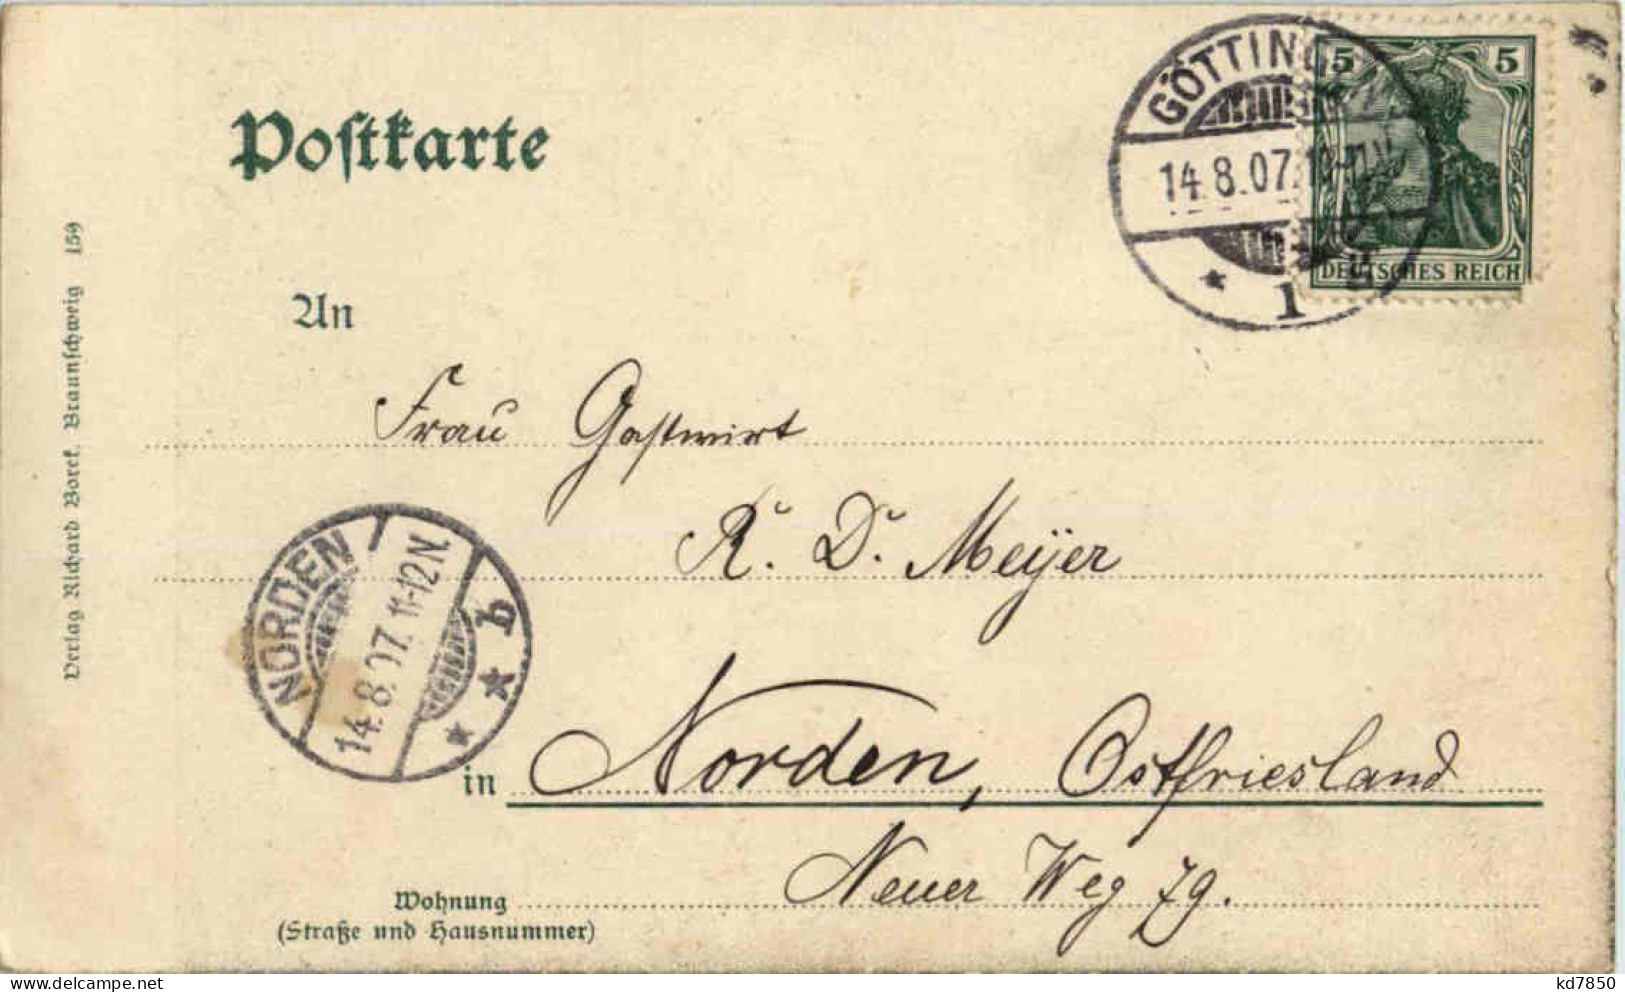 Postkarte
5 5
DEUTSCHES REICH
GÖTTINGEN
14.8.07.
* 1
An
Frau Gastwirt
R. D. Meijer
NORDEN
14.8.07. 11-12 N.
* * b
in Norden, Ostfriesland
Neuer Weg 79.
Wohnung
(Straße und Hausnummer)
Verlag Richard Borek, Braunschweig 159
kd7850